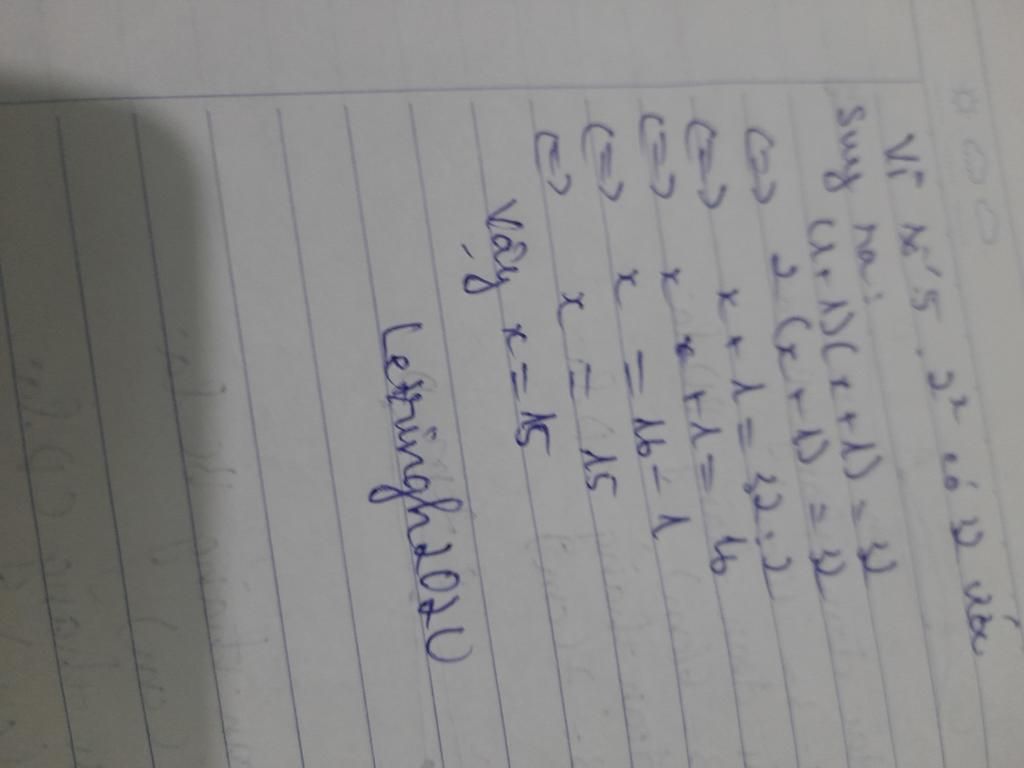 Vì số 5 . 2ˣ có 32 ước
Suy ra:
(1+1)(x+1) = 32
(=) 2(x+1) = 32
(=) x+1 = 32:2
(=) x+1 = 16
(=) x = 16-1
(=) x = 15
Vậy x = 15